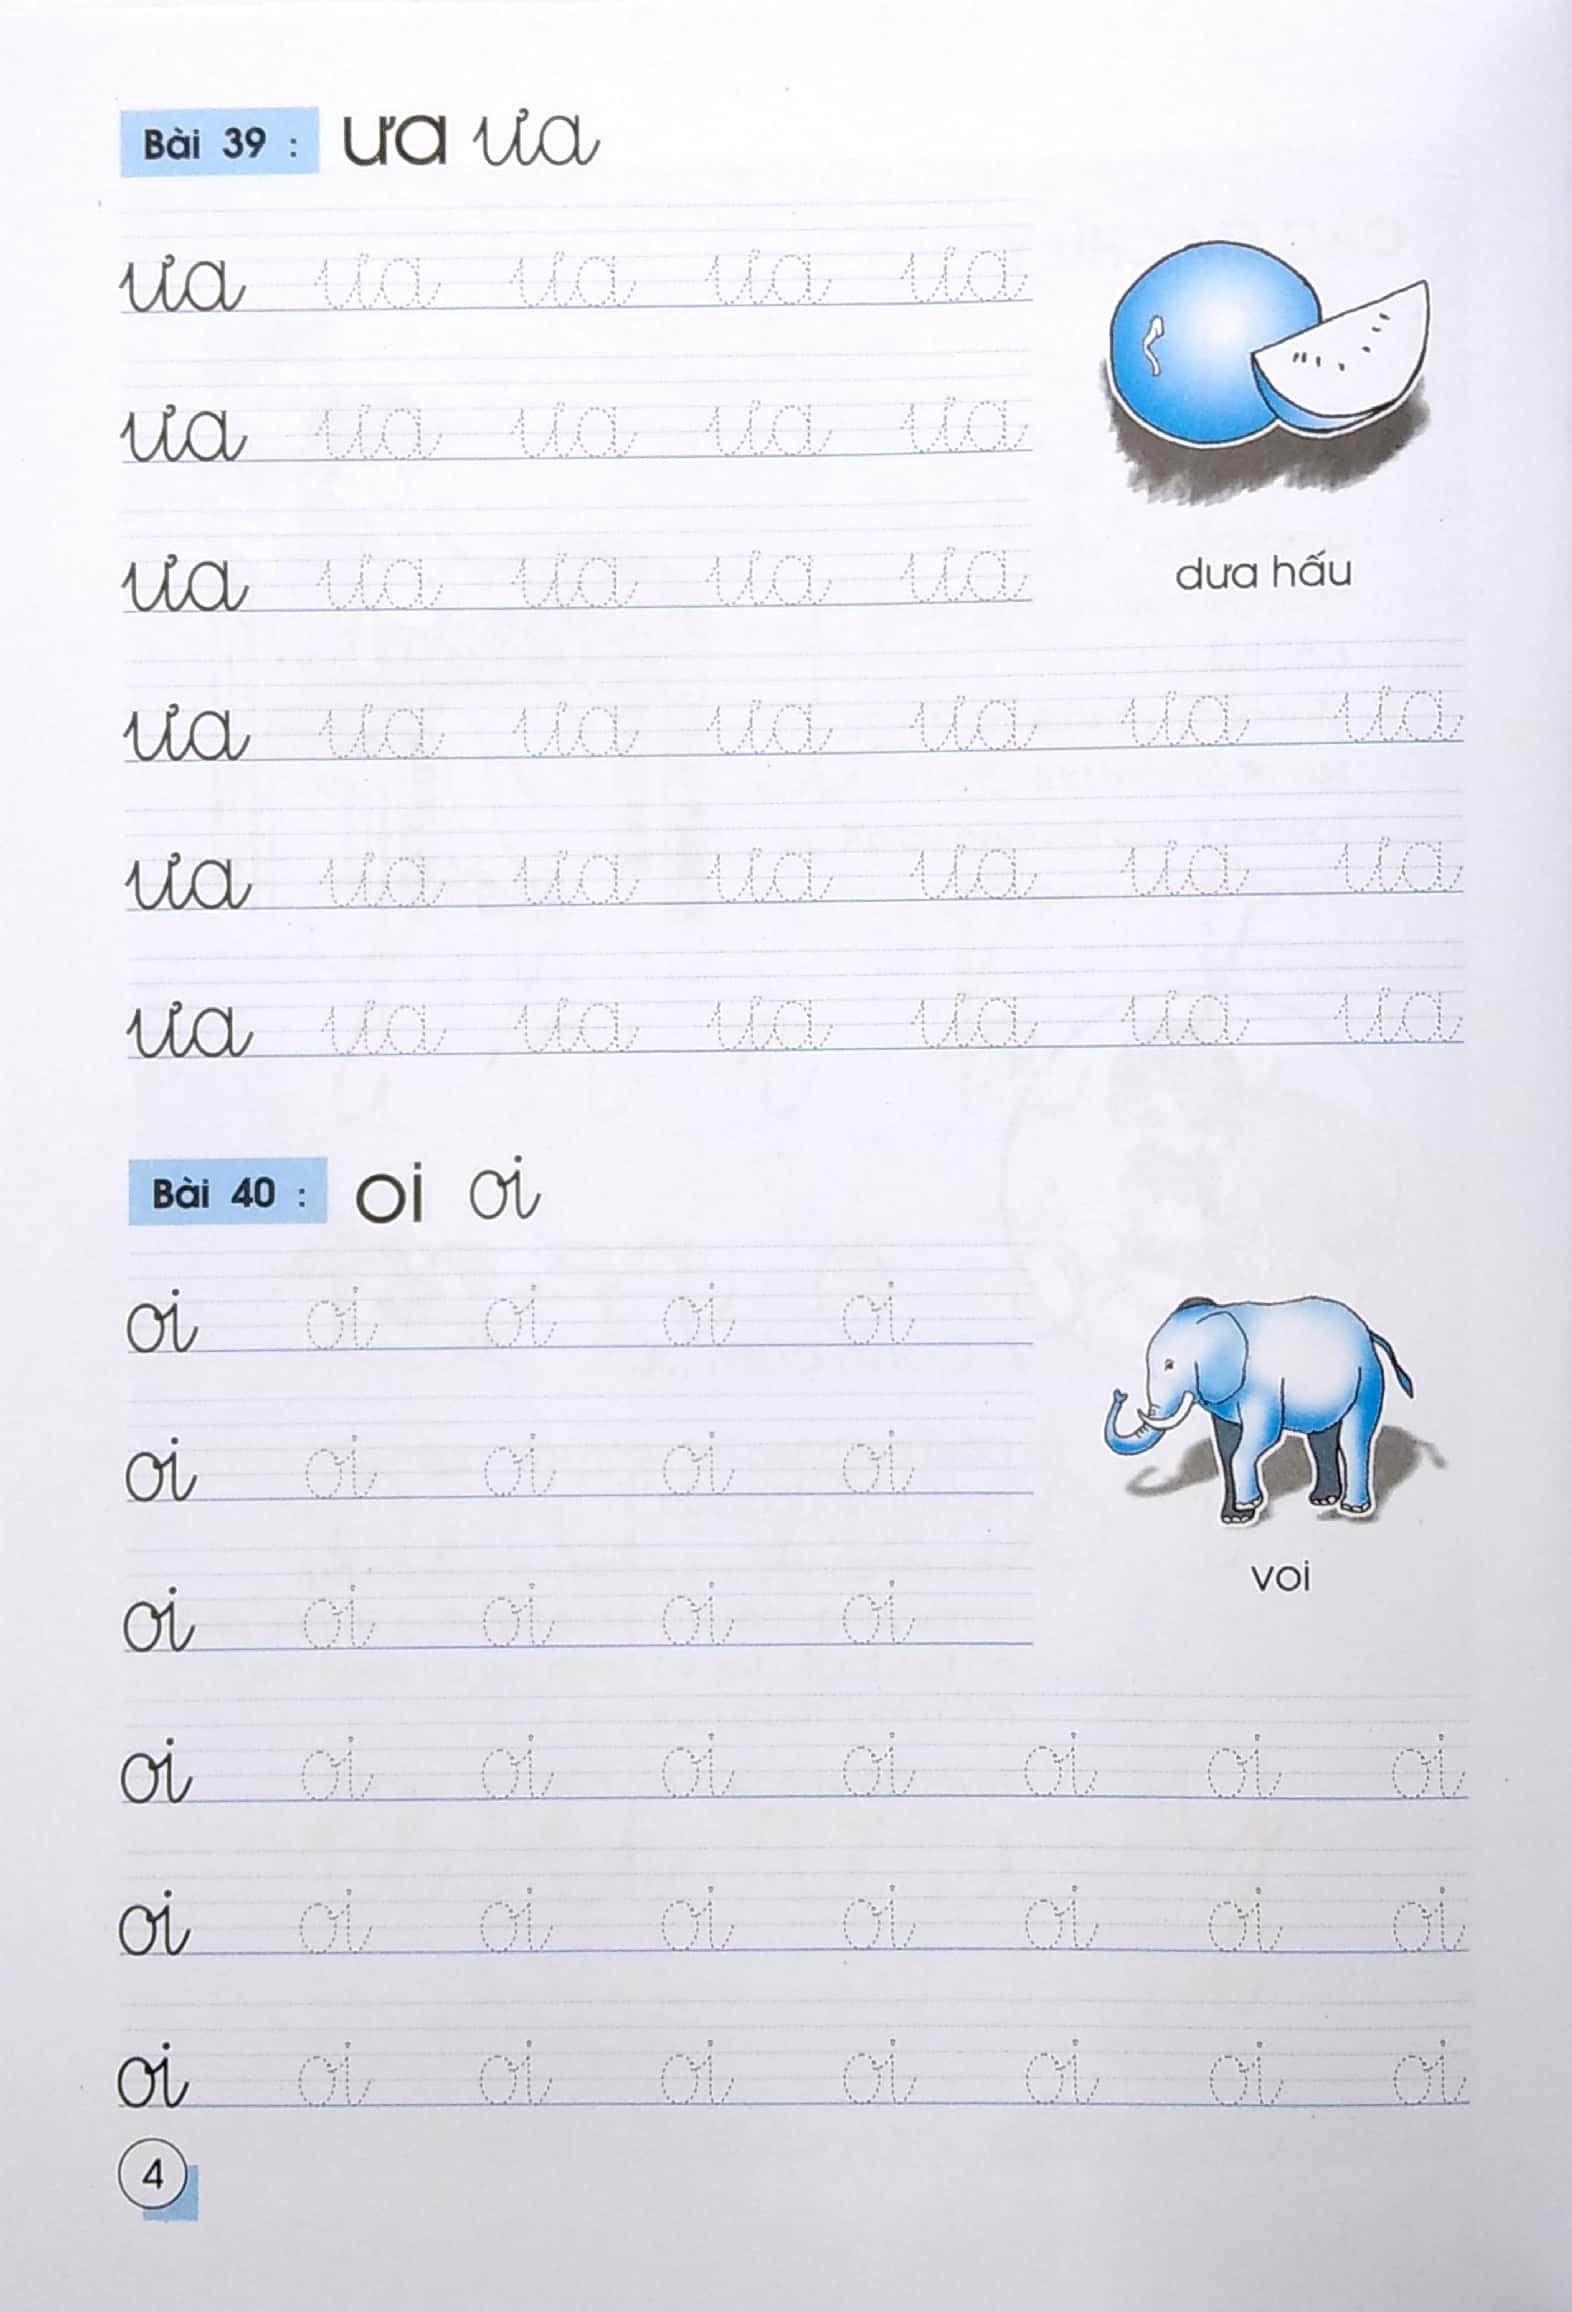 Bài 39 : ưa ưa
ưa ưa ưa ưa ưa
ưa ưa ưa ưa ưa
ưa ưa ưa ưa ưa
dưa hấu
ưa ưa ưa ưa ưa ưa ưa
ưa ưa ưa ưa ưa ưa ưa
ưa ưa ưa ưa ưa ưa ưa
Bài 40 : oi oi
oi oi oi oi oi
oi oi oi oi oi
oi oi oi oi oi
voi
oi oi oi oi oi oi oi oi
oi oi oi oi oi oi oi oi
oi oi oi oi oi oi oi oi
4